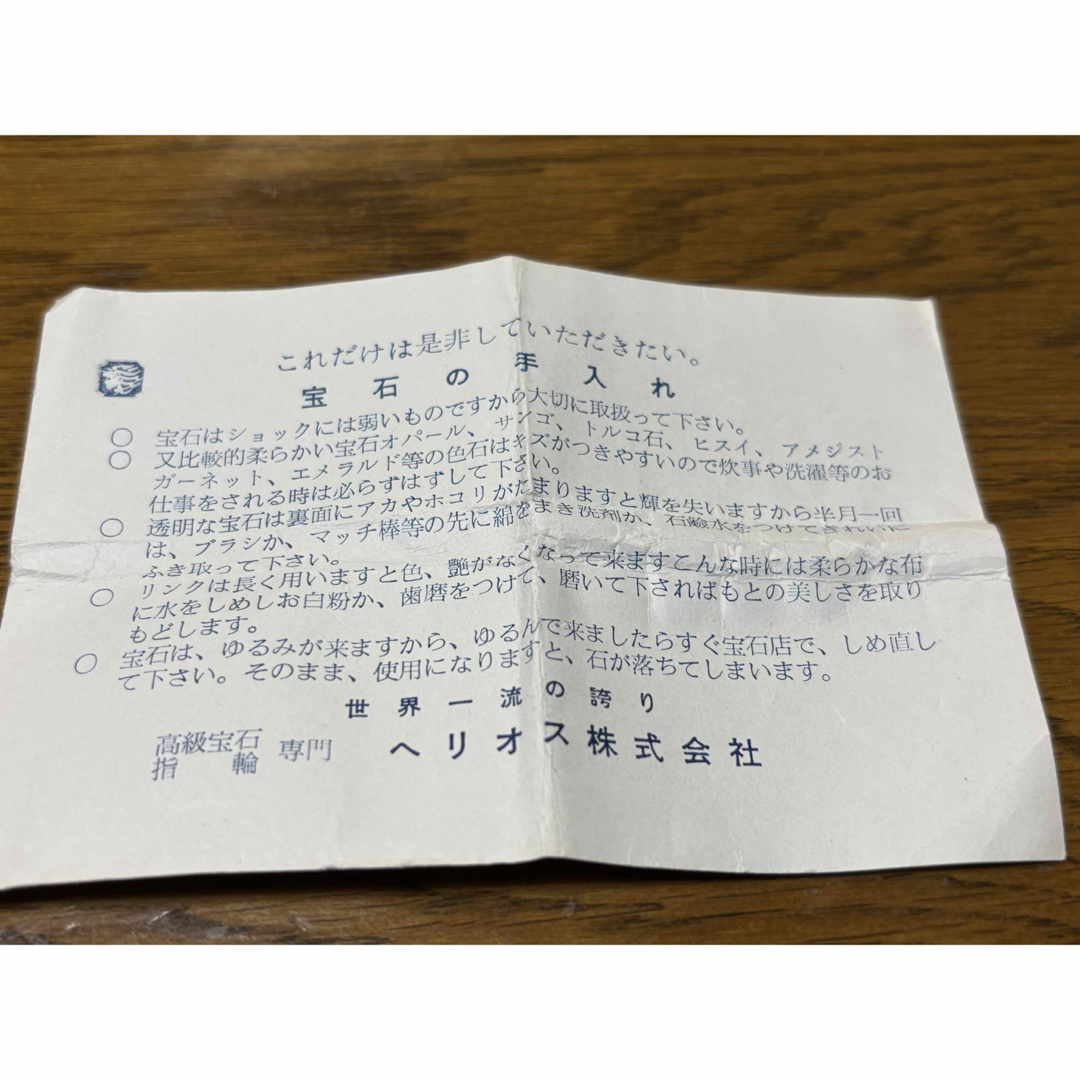 これだけは是非していただきたい。
宝石の手入れ
○ 宝石はショックには弱いものですから大切に取扱って下さい。
○ 又比較的柔らかい宝石オパール、サンゴ、トルコ石、ヒスイ、アメジスト
ガーネット、エメラルド等の色石はキズがつきやすいので炊事や洗濯等のお
仕事をされる時は必らずはずして下さい。
○ 透明な宝石は裏面にアカやホコリがたまりますと輝を失いますから半月一回
は、ブラシか、マッチ棒等の先に綿をまき洗剤か、石鹼水をつけてきれいに
ふき取って下さい。
○ リンクは長く用いますと色、艶がなくなって来ますこんな時には柔らかな布
に水をしめしお白粉か、歯磨をつけて、磨いて下さればもとの美しさを取り
もどします。
○ 宝石は、ゆるみが来ますから、ゆるんで来ましたらすぐ宝石店で、しめ直し
て下さい。そのまま、使用になりますと、石が落ちてしまいます。
世界一流の誇り
高級宝石
指輪 専門 ヘリオス株式会社